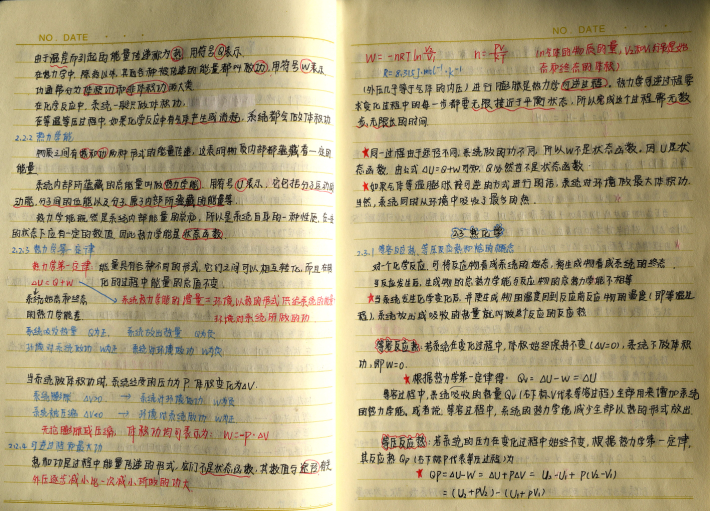 NO. DATE
由于温度而引起的能量传递称为热,用符号Q表示.
在热力学中,除热以外,其他各种被传递的能量都叫做功,用符号W表示.
功通常分为体积功和非体积功两大类
在化学反应中,系统一般只做体积功.
在等温等压过程中,如果化学反应中有气体产生或消耗,系统都会有体积功
2.2.2 热力学能
物质之间有热和功两种形式的能量传递,这表明物质内部都蕴藏着一定的
能量.
系统内部所蕴藏的总能量叫做热力学能,用符号U表示,它包括分子运动的
动能,分子间的位能以及分子、原子内部所蕴藏的能量等.
热力学能既然是系统内部能量的总和,所以是系统自身的一种性质,在一定
的状态下应有一定的数值,因此热力学能是状态函数.
2.2.3 热力学第一定律
热力学第一定律:能量具有各种不同的形式,它们之间可以相互转化,而且在转
ΔU=Q+W 化的过程中能量的总值不变.
系统始态和终态 → 系统热力学能的增量=环境以热的形式供给系统的能量+
的热力学能差 环境对系统所做的功
系统吸收热量 Q为正 系统放出热量 Q为负
环境对系统做功 W为正 系统对环境做功 W为负
当系统做体积功时,系统经受的压力为P,体积变化为ΔV.
系统膨胀 ΔV>0 → 系统对环境做功 W为负
系统被压缩 ΔV<0 → 环境对系统做功 W为正
无论膨胀或压缩,体积功均可表示为 W=-P·ΔV
2.2.4 可逆过程和最大功
热和功是过程中能量传递的形式,它们不是状态函数,其数值与途径有关
外压逐步减小比一次减小所做的功大
NO. DATE
W=-nRTln V₂/V₁ n=PV/RT
(外压几乎等于气体的内压)进行膨胀是热力学可逆过程,热力学可逆过程要
求变化过程中的每一步都要无限接近于平衡状态,所以完成这个过程需无数
步,无限长的时间.
★同一过程由于途径不同,系统做的功不同,所以W不是状态函数,因U是状
态函数,由公式ΔU=Q+W可知Q必然也不是状态函数.
★如果气体等温膨胀按可逆的方式进行的话,系统对环境做最大体积功.
当然,系统同时从环境中吸收了最多的热.
§2.3 热化学
2.3.1 等容反应热、等压反应热和焓的概念
对一个化学反应,可将反应物看成系统的始态,将生成物看成系统的终态.
当反应发生后,生成物的总热力学能与反应物的总热力学能不相等
★当系统发生化学变化后,并使生成物的温度回到反应前反应物的温度(即等温过
程),系统放出或吸收的热量就叫做这个反应的反应热
等容反应热:若系统在变化过程中,体积始终保持不变(ΔV=0),系统不做体积
功,即W=0.
★根据热力学第一定律得: Qv=ΔU-W=ΔU
等容过程中,系统吸收的热量Qv(右下标V代表等容过程)全部用来增加系统
的热力学能,或者说,等容过程中,系统的热力学能减少全部以热的形式放出
等压反应热:若系统的压力在变化过程中始终不变,根据热力学第一定律,
其反应热Qp(右下标P代表等压过程)为
★ Qp=ΔU-W=ΔU+PΔV=U₂-U₁+P(V₂-V₁)
=(U₂+PV₂)-(U₁+PV₁)